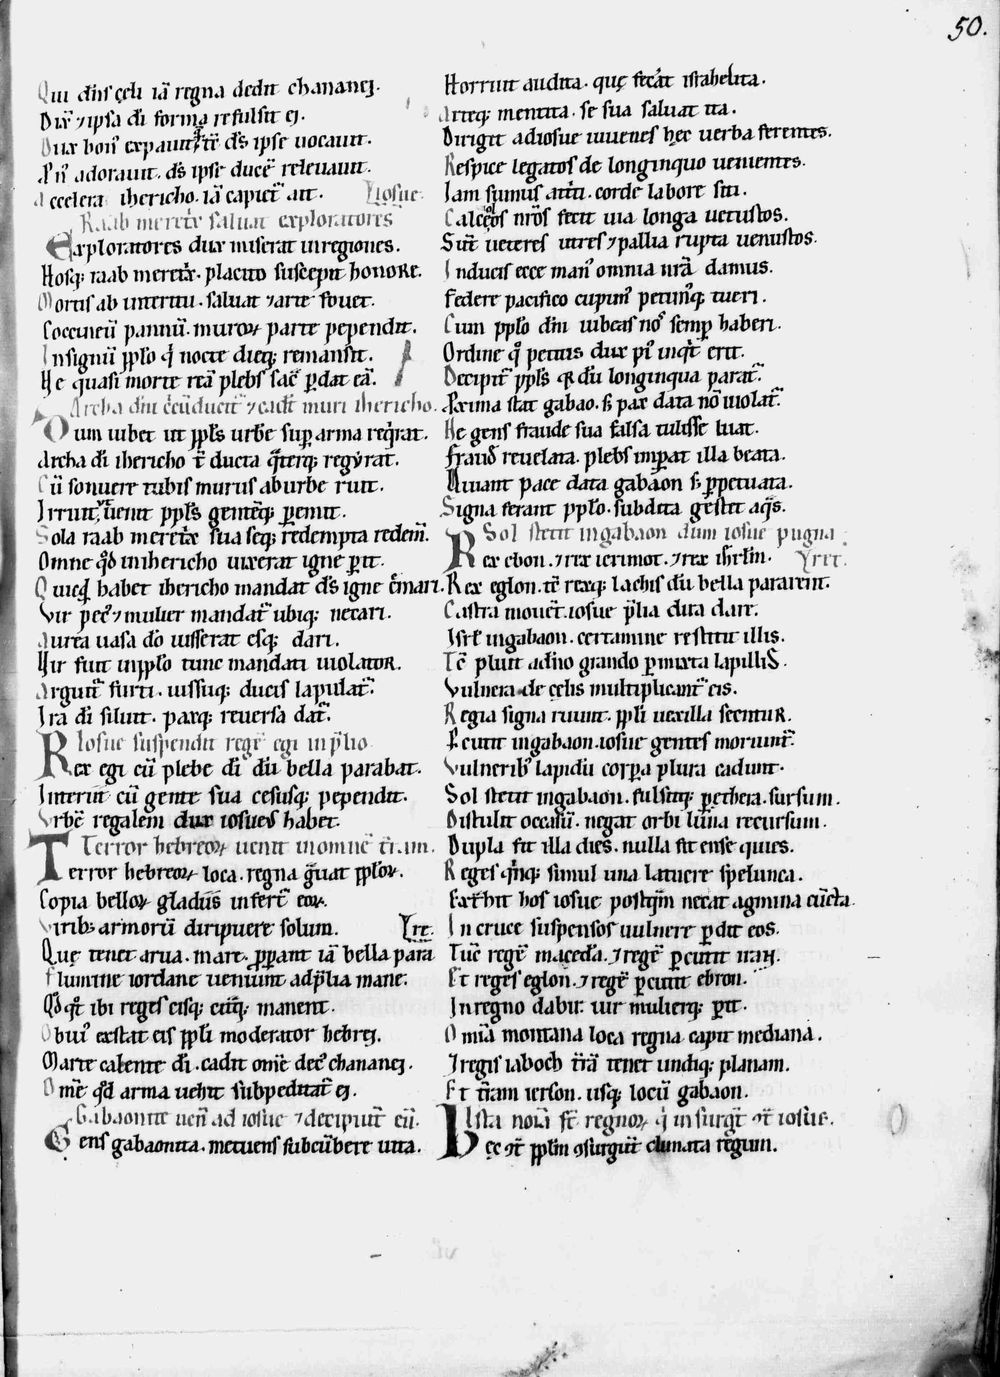 50.
Qui dn̄s cęli iā regna dedit chananęi.
Dix̄ ⁊ ipsa di forma refulsit ei.
Dux bonꝰ expauit ds̄ ipse uocauit.
adorauit. ds̄ ipse ducē releuauit.
Accelera ihericho. iā capiet̄ ait. Liosue.
Raab meret̄x saluat exploratores
Exploratores dux miserat inregiones.
Hosq; raab meret̄x. placito suscepit honore.
Mortis ab interitu. saluat ⁊ arte fouet.
Coccineū pannū. muroꝝ parte pependit.
Insignū pplō q̇ nocte dieq; remansit.
He quasi morte reā plebs sac̄ p̄dat eā.
Archa dn̄i ducit̄ ⁊ cadt̄ muri ihericho.
Dum iubet ut ppl̄s urbē sup̄ arma req̇rat.
Archa di ihericho t̄ ducta q̄terq; regyrat.
Cū sonuere tubis murus aburbe ruit.
Irruit, uenit ppl̄s gentēq; p̄emit.
Sola raab meret̄x sua seq; redempta redem̄.
Omne q̊d inihericho uixerat igne p̄it.
Quicq̇d habet ihericho mandat ds̄ igne c̄mari.
Vir pecꝰ ⁊ mulier mandat̄ ubiq; necari.
Aurea uasa dō iusserat esq; dari.
Vir fuit inpplo tunc mandati uiolator.
Arguit̄ furti. iussuq; ducis lapidat̄.
Ira di siluit. paxq; reuersa dat̄.
Iosue suspendit regē egi inp̄lio
Rex egi cū plebe di dū bella parabat.
Interiit cū gente sua cesusq; pependit.
Vrbē regalem dux iosueis habet.
Terror hebreoꝝ uenit inomnē t̄ram.
Terror hebreoꝝ loca. regna g̃uat pploꝝ.
Copia belloꝝ gladiis infert̄ eoꝝ.
Virib; armorū diripuere solum.
Quę tenet arua. mare. p̄parant iā bella para
Flumine iordane ueniunt adp̄lia mane.
Qd̊ q̄t ibi reges eisq; manent.
Obuiꝰ exstat eis ppl̄i moderator hebręi.
Marte calente di. cadit om̄e decꝰ chananęi.
Om̄e q̊d arma uehit subpeditat̄ ei.
Gabaonite ueniūt ad iosue ⁊ decipiut̄ eū.
Gens gabaonita. metuens succūbere uita.
Horruit audita. quę fec̄at istahelita.
Arteq; mentita. se sua saluat ita.
Dirigit adiosue iuuenes hęc uerba ferentes.
Respice legatos de longinquo uenientes.
Iam sumus attriti. corde labore siti.
Calceos nr̄os fecit uia longa uetustos.
Sūt ueteres utres ⁊ pallia rupta uenustos.
Inducis ecce manꝰ omnia nrā damus.
Federe pacifico cupimꝰ petimꝰq; tueri.
Cum pplo dn̄i iubeas nos semp̄ haberi.
Ordine q̊ petitis dux piꝰ inq̇t erit.
Decipit̄ ppl̄s q̇ dū longinqua parat̄.
Proxima stat gabao. s; pax data nō uiolat̄.
He gens fraude sua falsa tulisse luat.
Fraus reuelata. plebs imp̄at illa beata.
Viuant pace data gabaon s; p̄petuata.
Signa ferant pplo. subdita gestet aq̄s.
Sol stetit ingabaon dum iosue pugna
Rex ebon. ⁊ rex ierimot. ⁊ rex ihrl̄m.
Rex eglon. tē rexq; lachis dū bella pararent.
Castra mouet. iosue p̄lia dira dare.
Isrl̄ ingabaon. certamine restitit illis.
Tē pluit adn̄o grando p̄mixta lapillis.
Vulnera de cęlis multiplicant̄ eis.
Regia signa ruunt. ppl̄i uexilla secntur.
P̄cutit ingabaon. iosue gentes moriunt̄.
Vulneribꝰ lapidū corp̄a plura cadunt.
Sol stetit ingabaon. fulsitq; p̄ethera. sursum.
Distulit occasū. negat orbi luna recursum.
Dupla fit illa dies. nulla fit ense quies.
Reges q̇nq; simul una latuere spelunca.
Ext̄hit hos iosue postq̄m necat agmina cūcta.
In cruce suspensos uulnere p̄dit eos.
Tūc regē maceda. ⁊ regē p̄cutit
Et reges eglon. ⁊ regē p̄cutit ebron.
Inregno dabir. uir mulierq; p̄it.
Omīa montana loca regna capit mediana.
Iregis iaboch t̄rā tenet undiq; planam.
Et t̄ram ierson. usq; locū gabaon.
Ista noīa st̄ regnoꝝ q̇ insurgt̄ ꝯt̄ iosue.
Hęc ꝯt̄ ppl̄m ꝯsurgūt dunata regum.